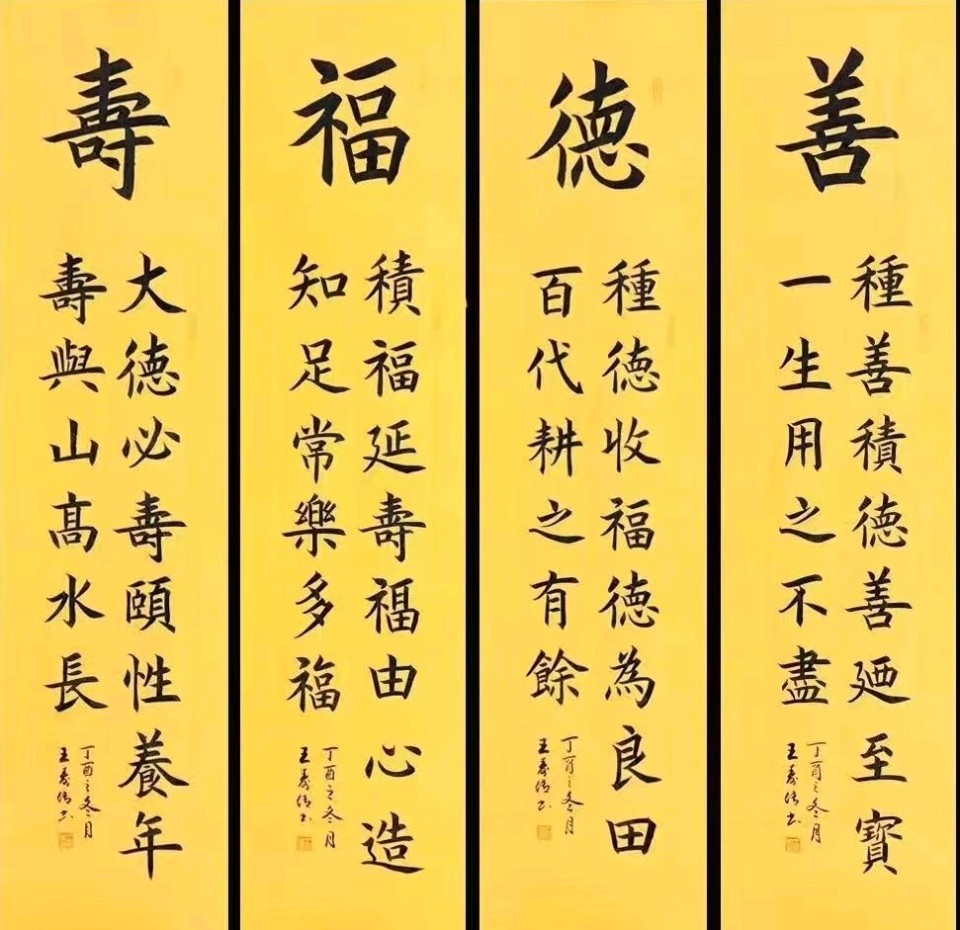 善
種善積德善廼至寶
一生用之不盡
丁酉之冬月
德
種德收福德為良田
百代耕之有餘
丁酉之冬月
福
積福延壽福由心造
知足常樂多福
丁酉之冬月
壽
大德必壽頤性養年
壽與山高水長
丁酉之冬月